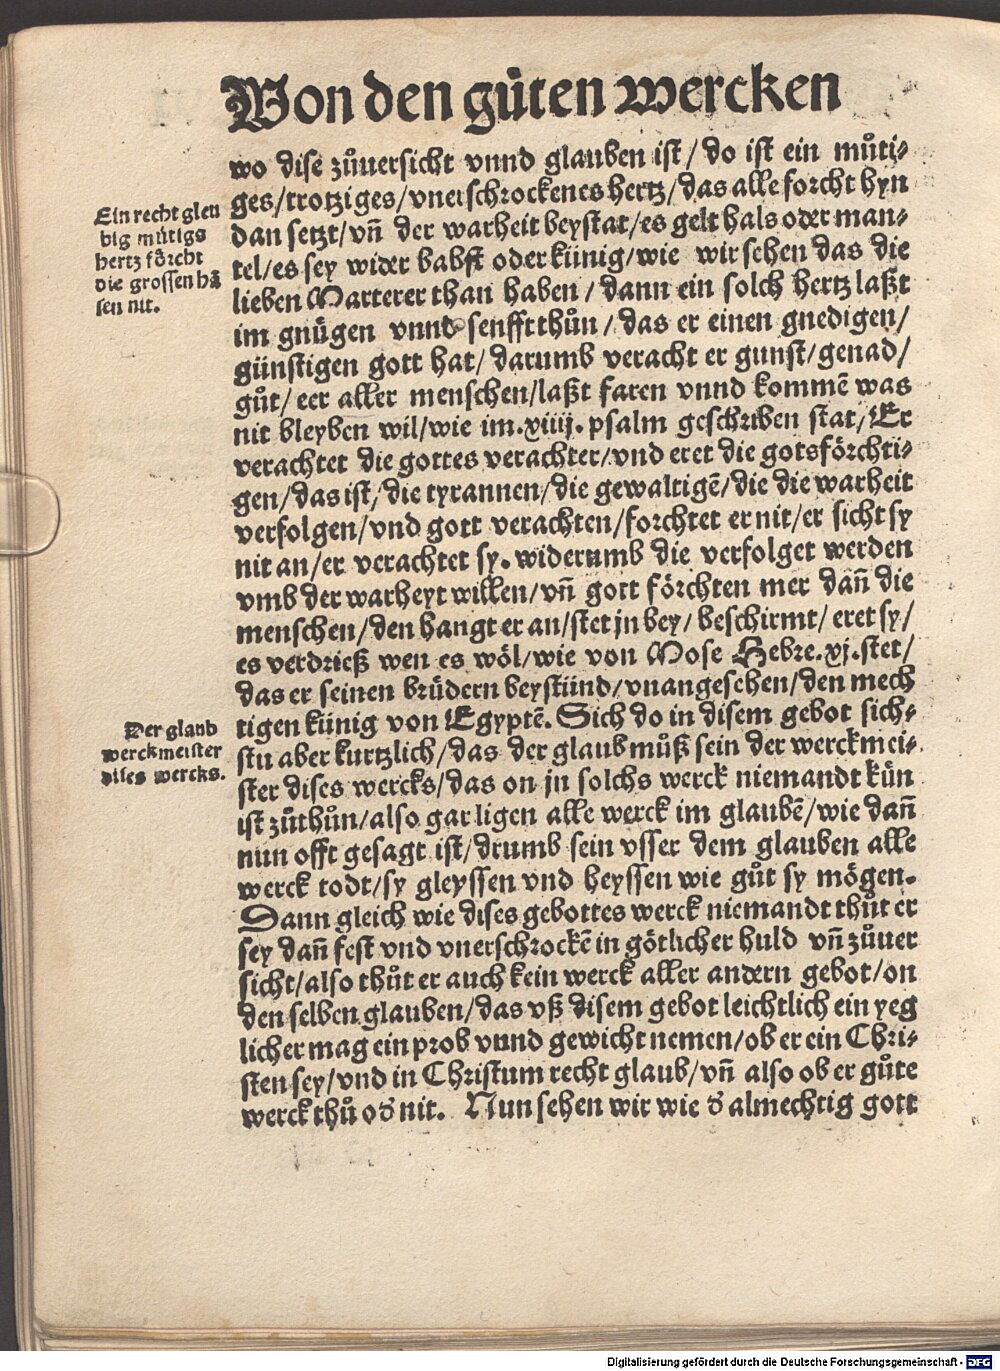 Von den gůten wercken
wo dise zůuersicht vnnd glauben ist/ do ist ein můti⸗
ges/trotziges/vnerschrockenes hertz/das alle forcht hyn
dan setzt/vñ der warheit beystat/es gelt hals oder man⸗
tel/es sey wider babst oder künig/wie wir sehen das die
lieben Marterer than haben/ dann ein solch hertz laßt
im gnügen vnnd senfft thůn/ das er einen gnedigen/
günstigen gott hat/ darumb veracht er gunst/genad/
gůt/ eer aller menschen/laßt faren vnnd kommē was
nit bleyben wil/wie im.xiiij. psalm geschriben stat/Er
verachtet die gottes verachter/vnd eret die gotsförchti⸗
gen/das ist/die tyrannen/die gewaltigē/die die warheit
verfolgen/vnd gott verachten/forchtet er nit/er sicht sy
nit an/er verachtet sy. widerumb die verfolget werden
vmb der warheyt willen/vñ gott förchten mer dañ die
menschen/den hangt er an/stet jn bey/ beschirmt/ eret sy/
es verdrieß wen es wöl/wie von Mose Hebre.xj.stet/
das er seinen brüdern beystünd/vnangesehen/den mech
tigen künig von Egyptē. Sich do in disem gebot sich⸗
stu aber kurtzlich/das der glaub můß sein der werckmei⸗
ster dises wercks/das on jn solchs werck niemandt kün
ist zůthůn/also gar ligen alle werck im glaubē/wie dañ
nun offt gesagt ist/drumb sein vsser dem glauben alle
werck todt/sy gleyssen vnd heyssen wie gůt sy mögen.
Dann gleich wie dises gebottes werck niemandt thůt er
sey dañ fest vnd vnerschrockē in götlicher huld vñ zůuer
sicht/also thůt er auch kein werck aller andern gebot/on
den selben glauben/das vß disem gebot leichtlich ein yeg
licher mag ein prob vnnd gewicht nemen/ob er ein Chri⸗
sten sey/vnd in Christum recht glaub/vñ also ob er gůte
werck thů oď nit. Nun sehen wir wie ď almechtig gott
Ein recht gleu
big můtigs
hertz förcht
die grossen hā
sen nit.
Der glaub
werckmeister
dises wercks.
Digitalisierung gefördert durch die Deutsche Forschungsgemeinschaft - DFG